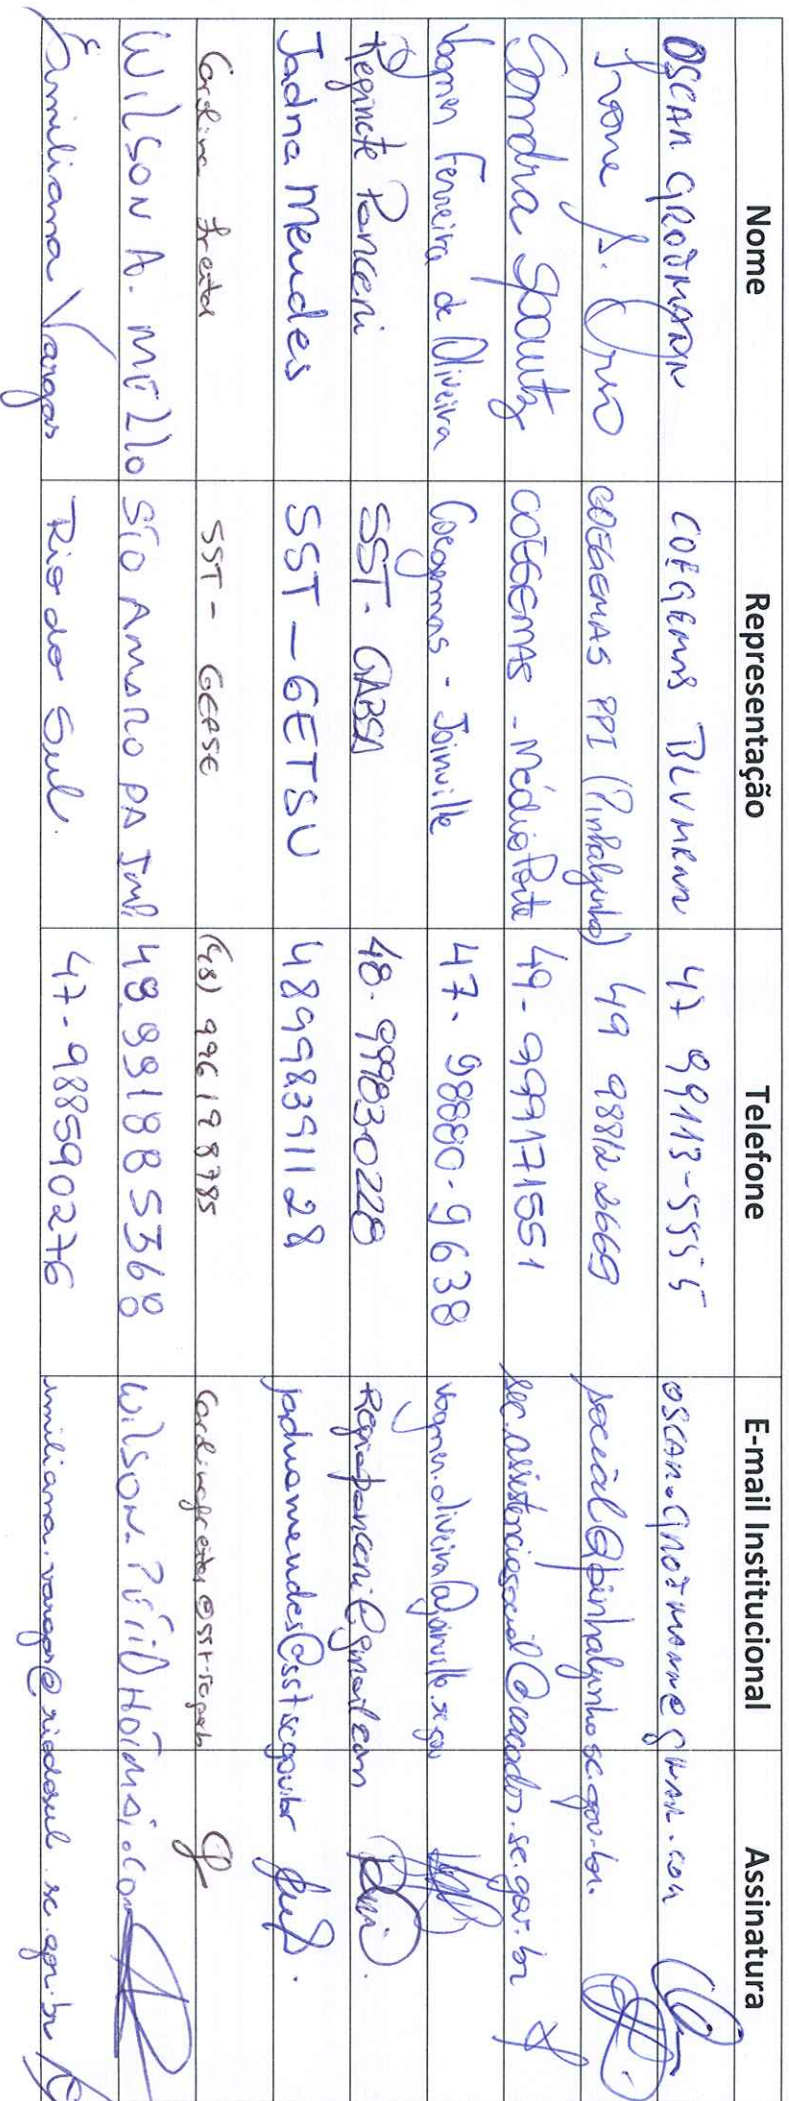 Nome Representação Telefone E-mail Institucional Assinatura
OSCAR GROTMANN COEGEMAS BLUMENAU 47 99113-5555 OSCAR.GROTMANN@GMAIL.COM
Ivone COEGEMAS PPI (Pinhalzinho) 49 98812 2669 social@pinhalzinho.sc.gov.br.
Sandra Spautz COEGEMAS - Médio Porte 49-999171551 sec.assistenciasocial@cacador.sc.gov.br
Vagner Ferreira de Oliveira Coegemas - Joinville 47-98880-9638 vagner.oliveira@joinville.sc.gov
Reginete Panceri SST- GABSA 48-999830228 Regispanceri@gmail.com
Jadna Mendes SST-GETSU 48998391128 jadnamendes@sst.sc.gov.br
Carolina Freitas SST - GEPSE (48) 996198785
WILSON A. MELLO STO AMARO DA IMP. 48.991885368
Emiliana Vargas Rio do Sul. 47-988590276 emiliana.vargas@riodosul.sc.gov.br